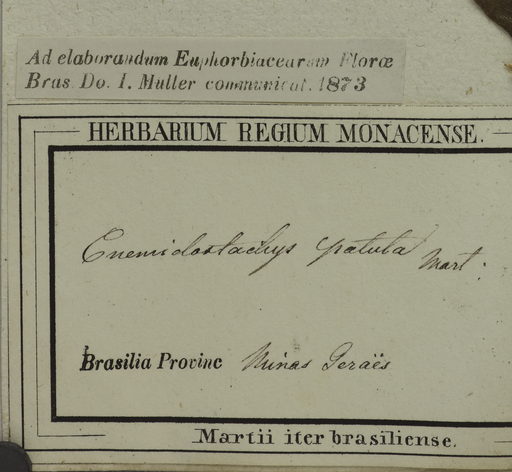 Ad elaborandum Euphorbiacearum Floræ
Bras Do. I. Muller communicat. 1873
HERBARIUM REGIUM MONACENSE.
Cnemidostachys patula Mart.
Brasilia Provinc Minas Geraës
Martii iter brasiliense.